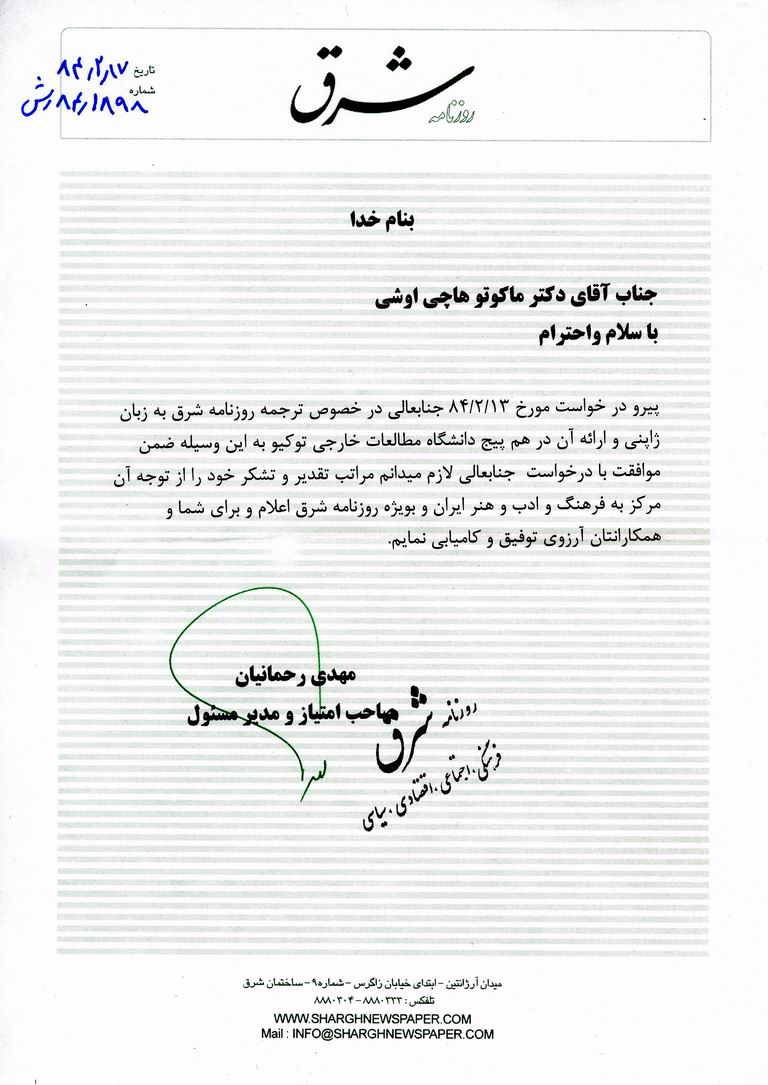 شرق
روزنامه
تاریخ ۸۴٫۲٫۱۷
شماره ۸۴٫۱۸۹۸رش
بنام خدا
جناب آقای دکتر ماکوتو هاچی اوشی
با سلام واحترام
پیرو در خواست مورخ ۸۴/۲/۱۳ جنابعالی در خصوص ترجمه روزنامه شرق به زبان
ژاپنی و ارائه آن در هم پیج دانشگاه مطالعات خارجی توکیو به این وسیله ضمن
موافقت با درخواست جنابعالی لازم میدانم مراتب تقدیر و تشکر خود را از توجه آن
مرکز به فرهنگ و ادب و هنر ایران و بویژه روزنامه شرق اعلام و برای شما و
همکارانتان آرزوی توفیق و کامیابی نمایم.
مهدی رحمانیان
صاحب امتیاز و مدیر مسئول
روزنامه شرق
فرهنگی، اجتماعی، اقتصادی، سیاسی
میدان آرژانتین - ابتدای خیابان زاگرس - شماره۹ - ساختمان شرق
تلفکس: ۸۸۸۰۳۳۳ - ۸۸۸۰۳۰۴
WWW.SHARGHNEWSPAPER.COM
Mail : INFO@SHARGHNEWSPAPER.COM